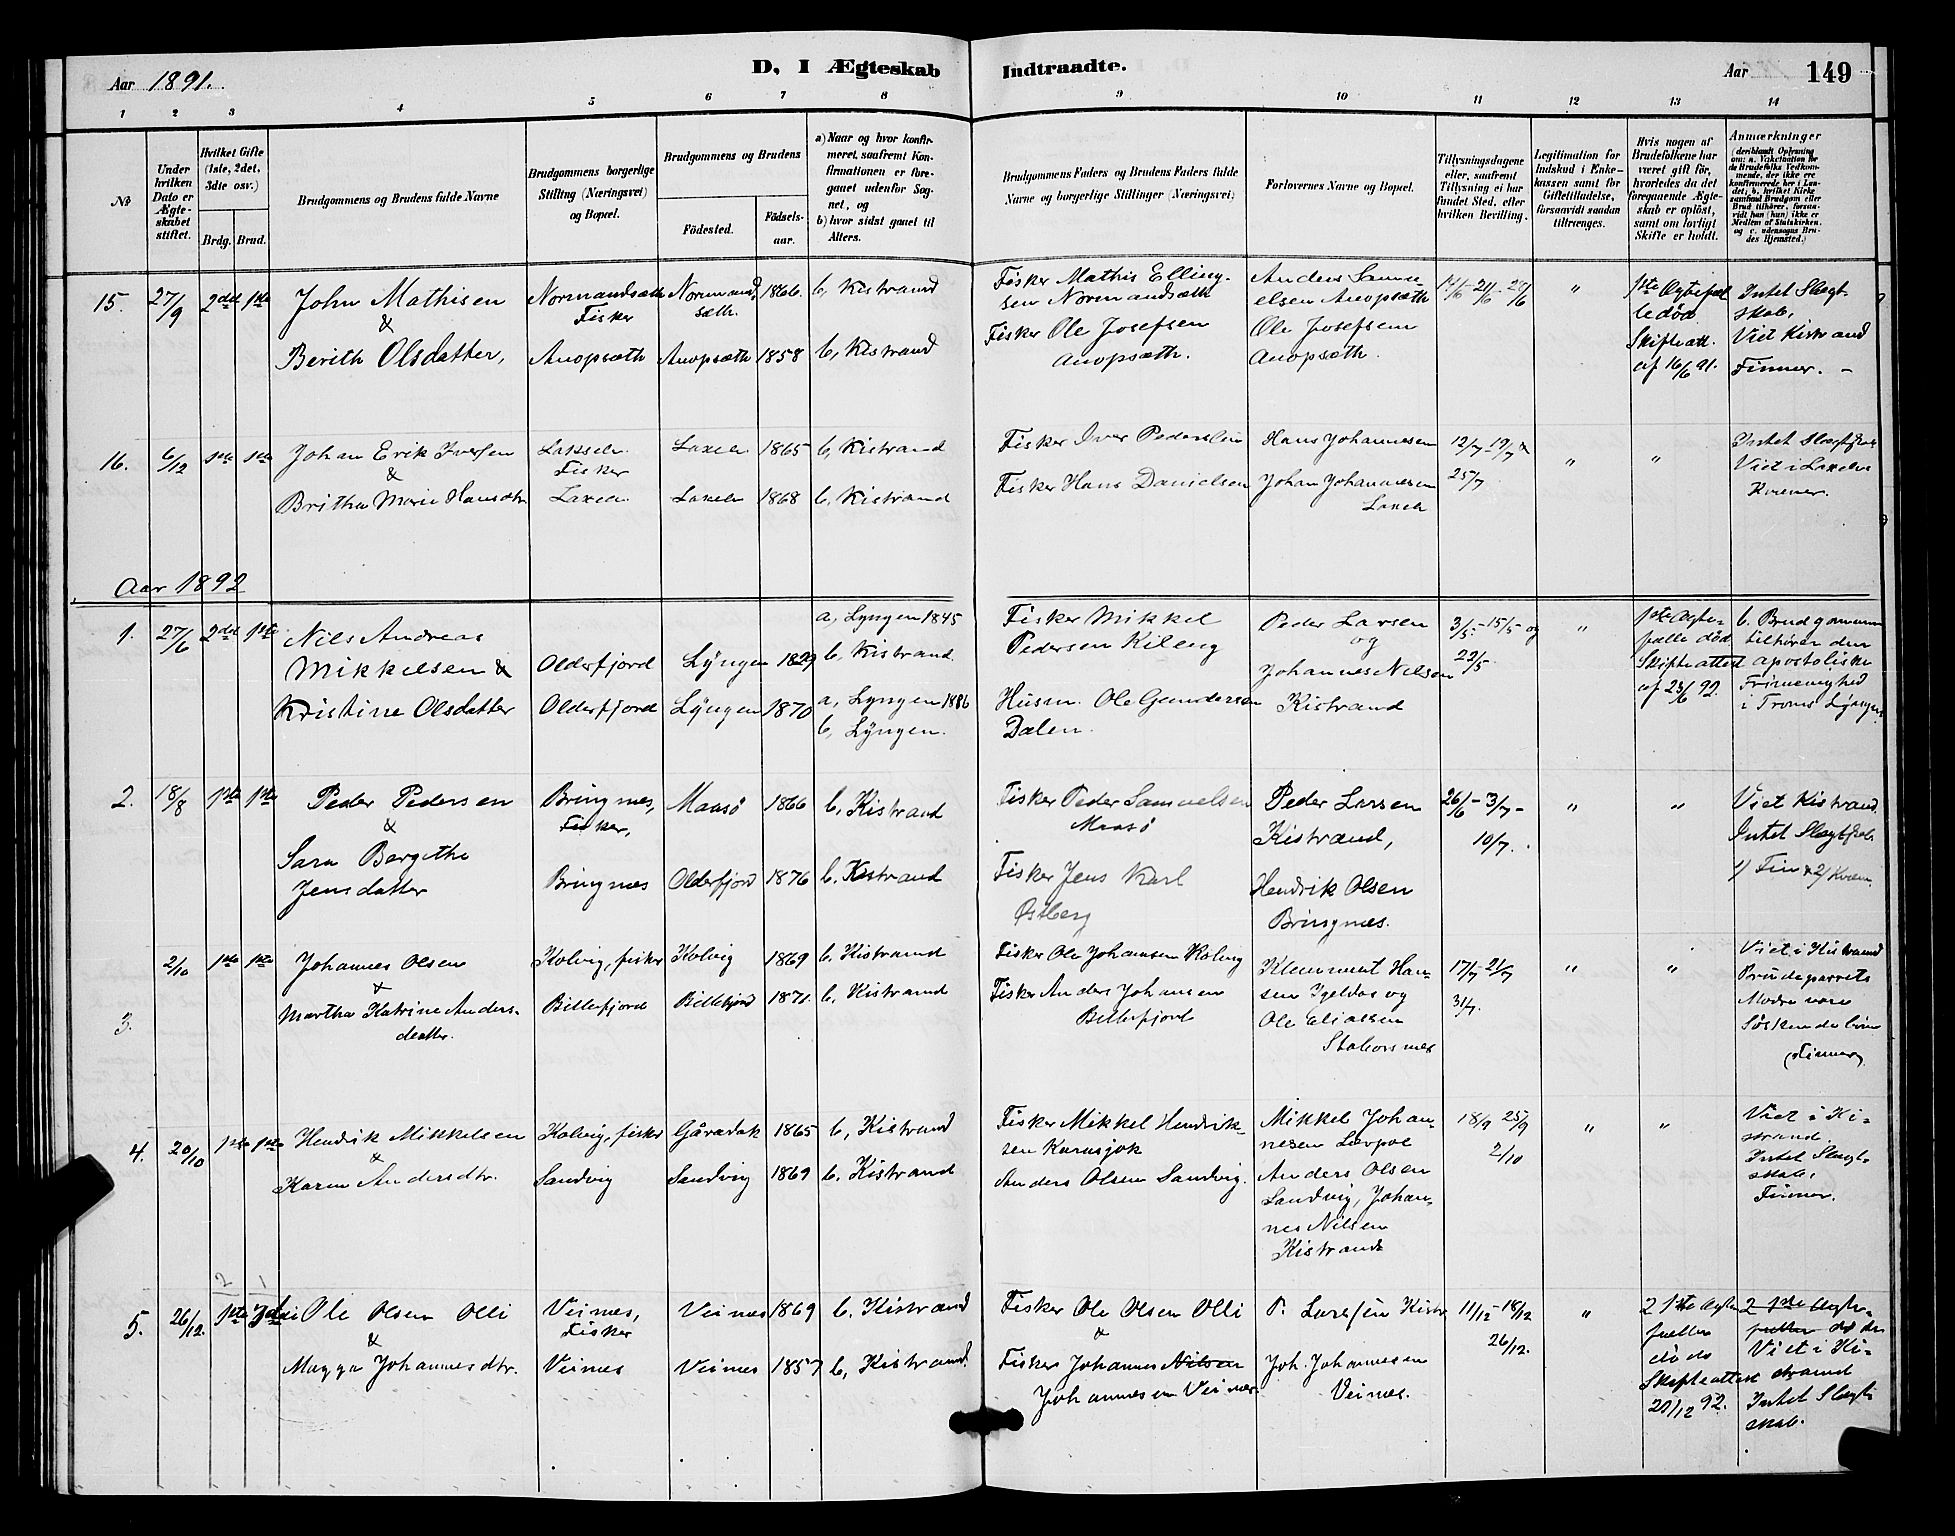 D, I Ægteskab Indtraadte.
Aar 1891.
Aar 149
1 2 3 4 5 6 7 8 9 10 11 12 13 14
No
Under hvilken Dato er Ægteskabet stiftet.
Hvilket Gifte (1ste, 2det, 3dte osv.)
Brdg. Brud.
Brudgommens og Brudens fulde Navne
Brudgommens borgerlige Stilling (Næringsvei) og Bopæl.
Brudgommens og Brudens
Födested.
Födsels-aar.
a) Naar og hvor konfirmeret, saafremt Konfirmationen er foregaaet udenfor Sognet, og
b) hvor sidst gaaet til Alters.
Brudgommens Faders og Brudens Faders fulde Navne og borgerlige Stillinger (Næringsvei)
Forlovernes Navne og Bopæl.
Tillysningsdagene eller, saafremt Tillysning ei har fundet Sted, efter hvilken Bevilling.
Legitimation for Indskud i Enkekassen samt for Giftetilladelse, forsaavidt saadan tiltrænges.
Hvis nogen af Brudefolkene har været gift för, hvorledes da det foregaaende Ægteskab er oplöst, samt om lovligt Skifte er holdt.
Anmærkninger
15. 27/9 2det 1ste
John Mathisen
&
Berith Olsdatter,
Normandsæth Fisker
Anopsæth
Normandsæth.
Anopsæth
1866.
1858
b, Kistrand
b, Kistrand
Fisker Mathis Ellingsen Normandsæth
Fisker Ole Josefsen Anopsæth.
Anders Samuelsen Anopsæth
Ole Josefsen Anopsæth.
14/6 - 21/6 28/6
"
1ste Ægtefælle död
Skifteatt. af 16/6 91.
Intet Slægtskab,
Viet Kistrand
Finner. -
16. 6/12 1ste 1ste
Johan Erik Iversen
&
Britha Marie Hansdtr
Laxelv. Fisker
Laxelv
Laxelv
Laxelv
1865
1868
b, Kistrand
b, Kistrand
Fisker Iver Pedersen
Fisker Hans Danielsen
Hans Johannesen
Johan Johannesen Laxelv
12/7 - 19/7 &
25/7
"
"
Intet Slægtskab
Viet i Laxelv
Kvæner.
Aar 1892
1. 27/6 2det 1ste
Nils Andreas
Mikkelsen &
Kristine Olsdatter
Olderfjord
Olderfjord
Lyngen
Lyngen
1829
1870
a, Lyngen 1845
b, Kistrand.
a, Lyngen 1886
b, Lyngen.
Fisker Mikkel
Pedersen Kileng
Husm. Ole Gundersen
Dalen.
Peder Larsen
og
Johannes Nilsen
Kistrand
3/5 - 15/5 og
22/5
"
1ste Ægtefælle död
Skifteattest
af 23/6 92.
b. Brudgommen
tilhörer den
apostoliske
Frimenighed
i Troms Lyngen.
2. 18/8 1ste 1ste
Peder Pedersen
&
Sara Bergithe
Jensdatter
Bringnes,
Fisker,
Bringnes
Maasö
Olderfjord
1866
1876
b, Kistrand
b. Kistrand
Fisker Peder Samuelsen
Maasö
Fisker Jens Karl
Østberg
Peder Larsen
Kistrand,
Hendrik Olsen
Bringnes.
26/6 - 3/7 -
10/7.
"
"
Viet Kistrand
Intet Slægtskab
1/ Fin & 2/ Kvæn.
3. 2/10 1ste 1ste
Johannes Olsen
&
Martha Katrine Andersdatter.
Kolvig, fisker
Billefjord
Kolvig
Billefjord
1869
1871.
b. Kistrand
b. Kistrand
Fisker Ole Johansen Kolvig
Fisker Anders Johansen
Billefjord
Klemmet Hansen Igeldas og
Ole Eliassen
17/7 24/7
31/7.
"
"
Viet i Kistrand
Brudeparrets
Mödre vare
Söskendebörn
(Finner)
4. 20/10 1ste 1ste
Hendrik Mikkelsen
&
Karen Andersdtr.
Kolvig, fisker
Sandvig
Gåradak
Sandvig
1865
1869
b, Kistrand
b. Kistrand
Fisker Mikkel Hendriksen Karasjok
Anders Olsen Sandvig.
Mikkel Johannesen Lerpol
Anders Olsen
Sandvig, Johannes Nilsen
Kistrand
18/9 25/9
2/10
"
"
Viet i Kistrand.
Intet Slægtskab,
Finner.
2 1
5. 26/12. 1ste
Ole Olsen Olli
&
Magga Johannesdtr.
Veines,
Fisker
Veines
Veines
Veines
1869
1857
b. Kistrand
b, Kistrand.
Fisker Ole Olsen Olli
&
Fisker Johannes Nilsen
Johannesen Veines
P. Larsen Kistr
Joh. Johannesen
Veines.
11/12 - 18/12
26/12.
"
2 1ste Ægtefælle
döde
Skifteattest
20/12 92.
2 1ste Ægtefælle
Viet i Kistrand
Intet Slægtskab.